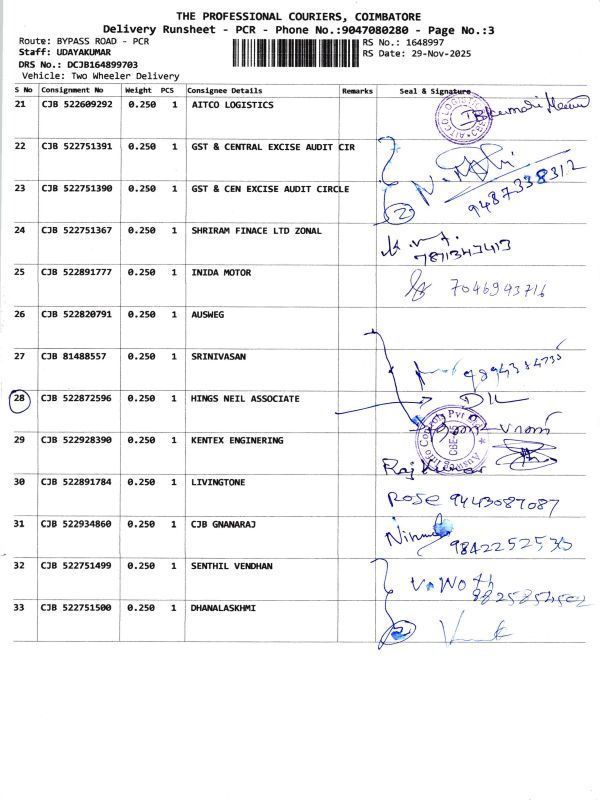 THE PROFESSIONAL COURIERS, COIMBATORE
Delivery Runsheet - PCR - Phone No.:9047080280 - Page No.:3
Route: BYPASS ROAD - PCR
RS No.: 1648997
Staff: UDAYAKUMAR
RS Date: 29-Nov-2025
DRS No.: DCJB164899703
Vehicle: Two Wheeler Delivery
S No Consignment No Weight PCS Consignee Details Remarks Seal & Signature
21 CJB 522609292 0.250 1 AITCO LOGISTICS
22 CJB 522751391 0.250 1 GST & CENTRAL EXCISE AUDIT CIR
23 CJB 522751390 0.250 1 GST & CEN EXCISE AUDIT CIRCLE
9487338312
2
24 CJB 522751367 0.250 1 SHRIRAM FINACE LTD ZONAL
7871343413
25 CJB 522891777 0.250 1 INIDA MOTOR
7046943716
26 CJB 522820791 0.250 1 AUSWEG
27 CJB 81488557 0.250 1 SRINIVASAN
28 CJB 522872596 0.250 1 HINGS NEIL ASSOCIATE
DIL
29 CJB 522928390 0.250 1 KENTEX ENGINERING
Raj Kumar
30 CJB 522891784 0.250 1 LIVINGTONE
ROSE 9443087087
31 CJB 522934860 0.250 1 CJB GNANARAJ
32 CJB 522751499 0.250 1 SENTHIL VENDHAN
33 CJB 522751500 0.250 1 DHANALASKHMI
2